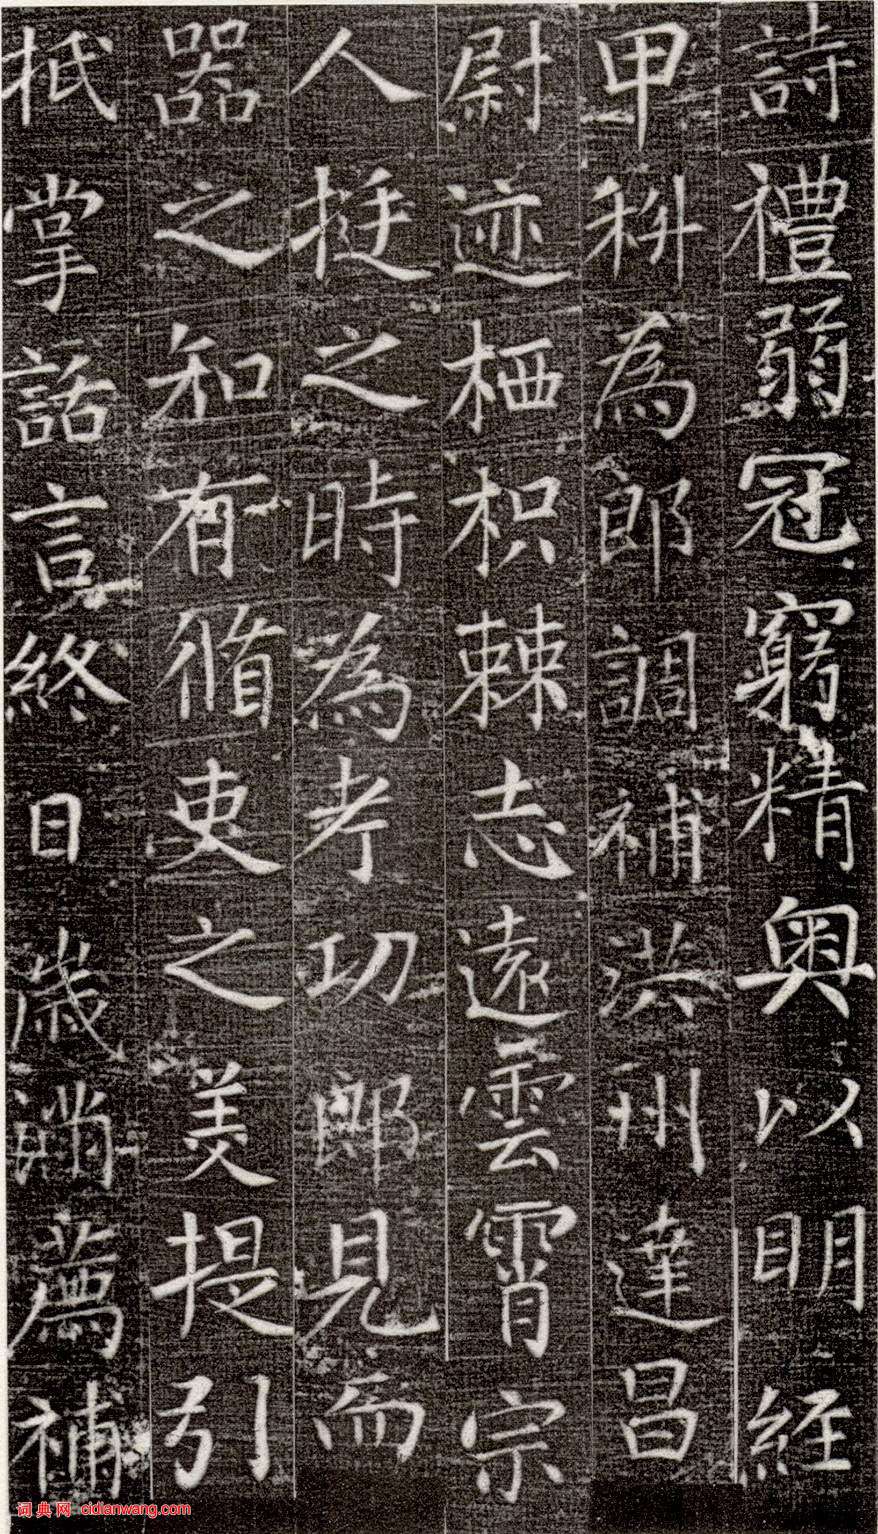 詩禮弱冠窮精奧以明經
甲科為郎調補洪州達昌
尉迹栖枳棘志遠雲霄宗
人挺之時為考功郎見而
器之知有脩吏之美提引
抵掌話言終日歲滿薦補
词典网 cidianwang.com